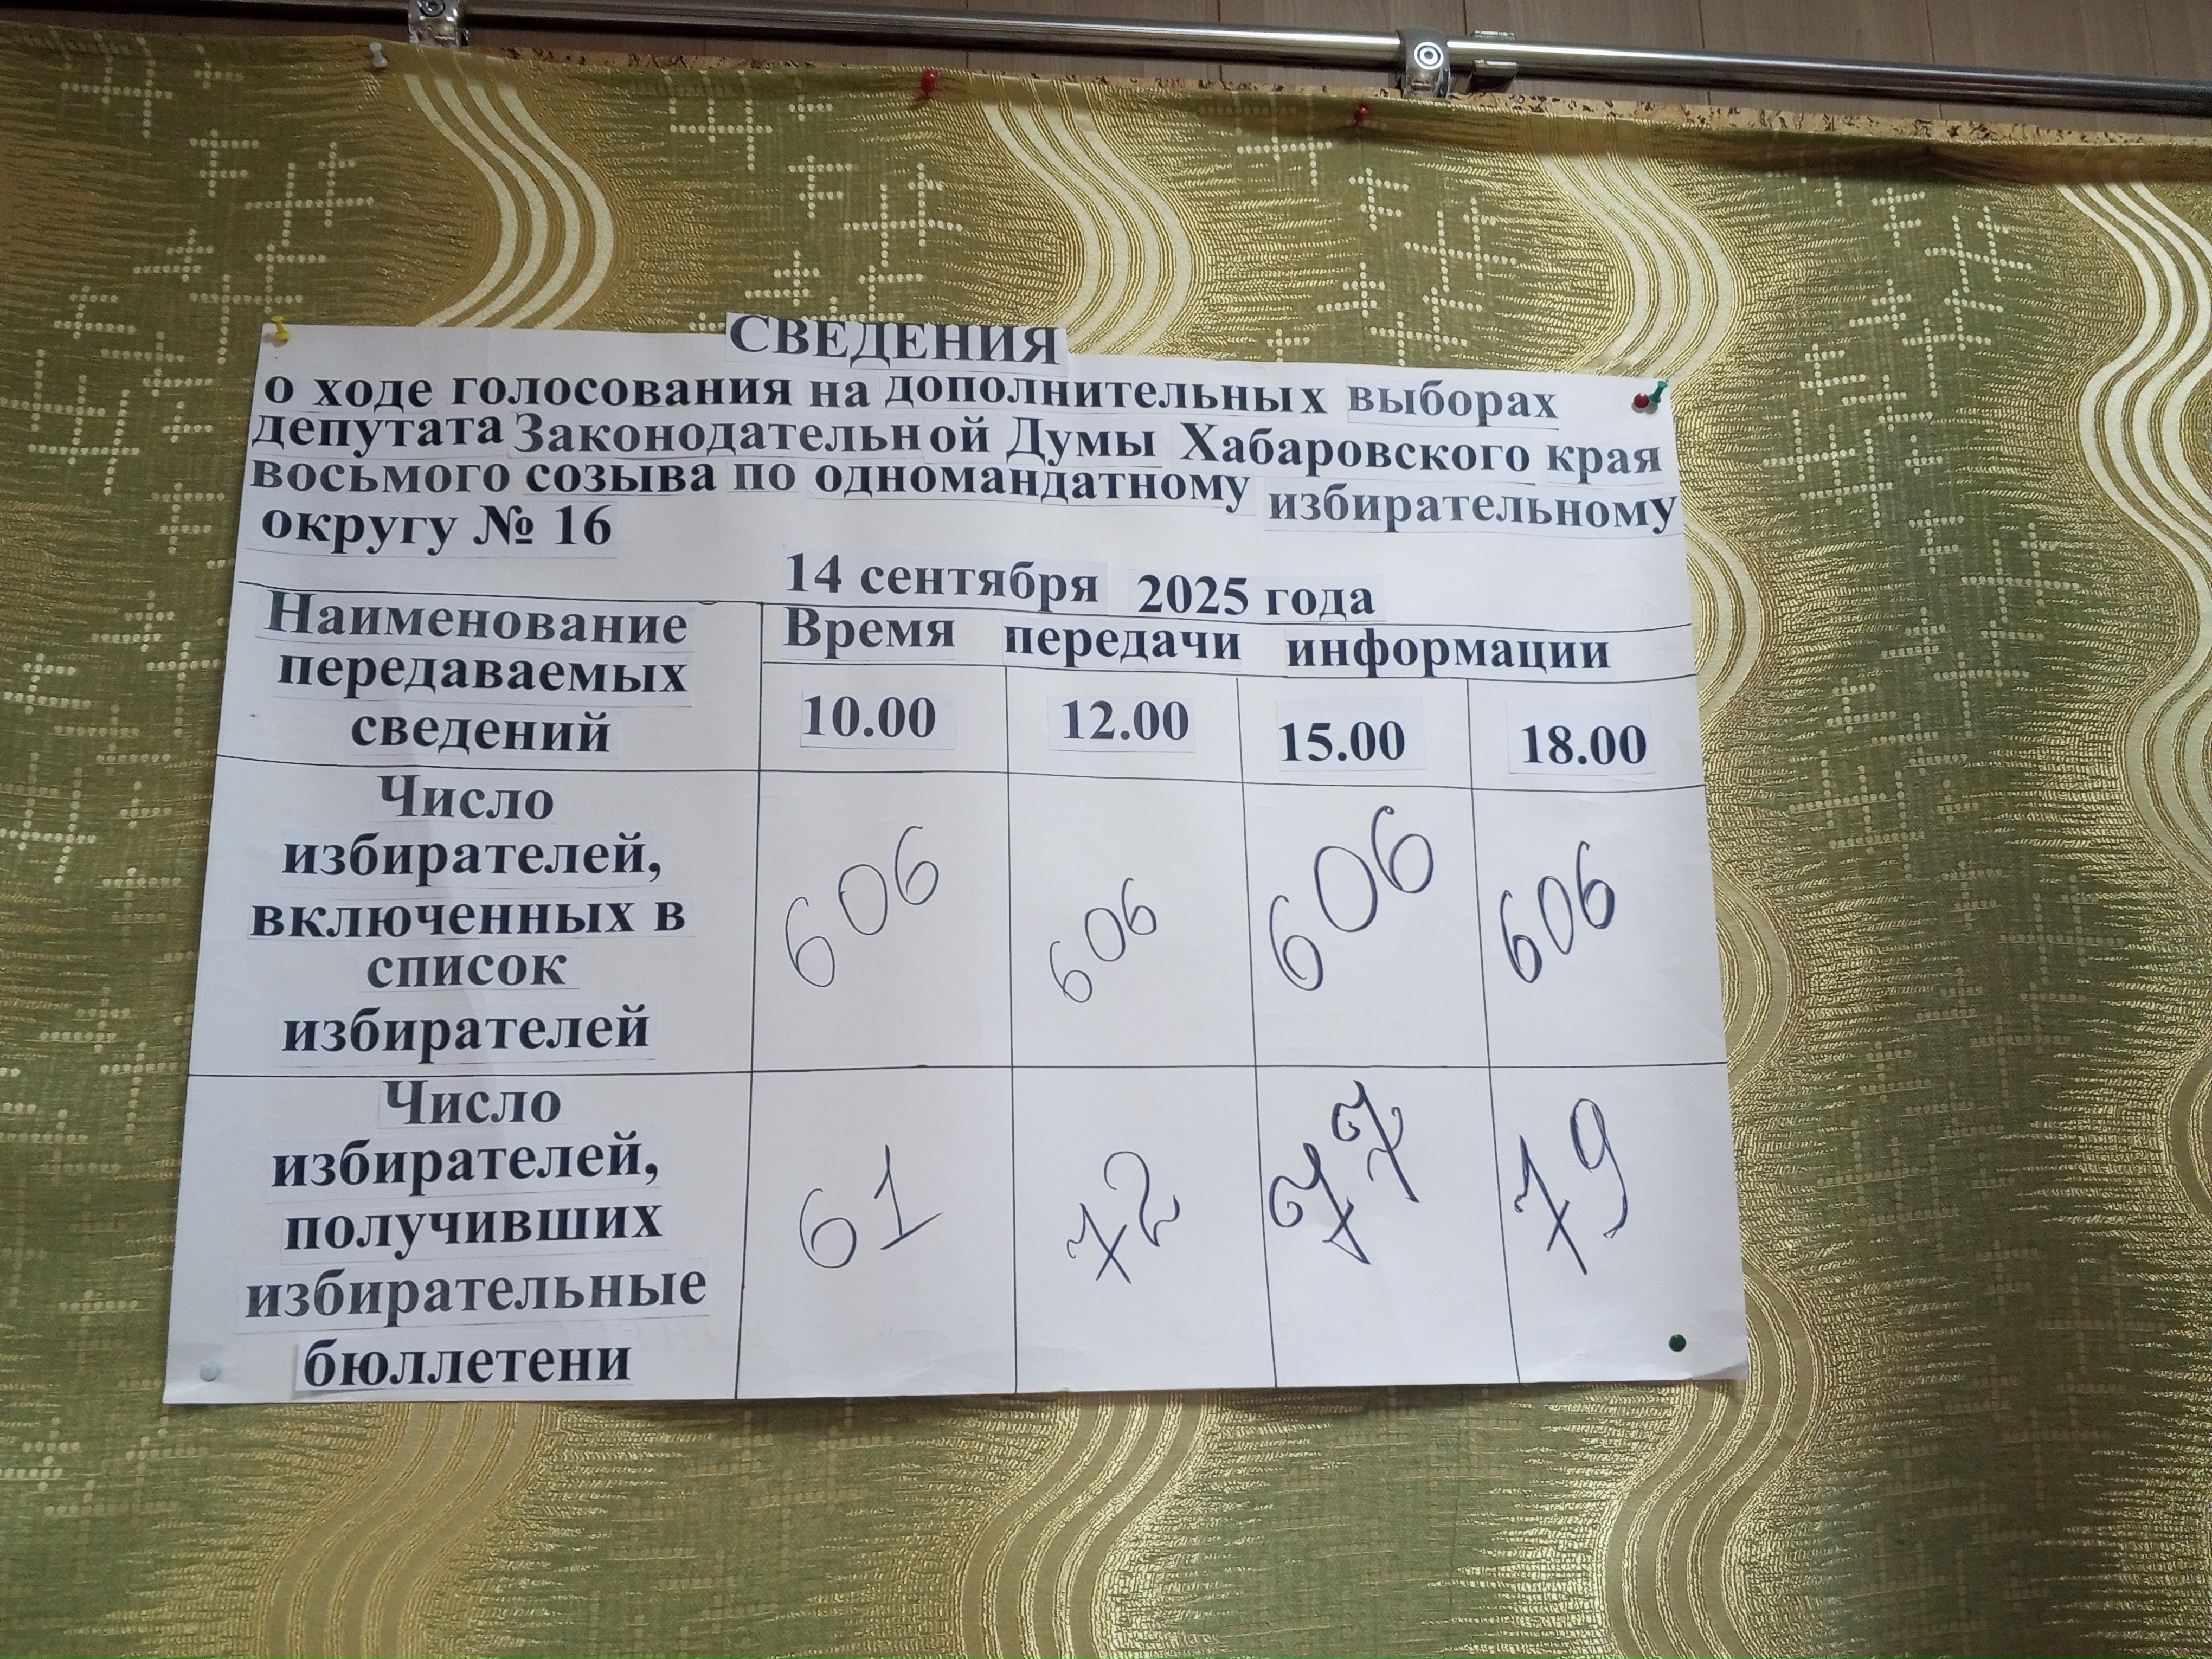 СВЕДЕНИЯ
о ходе голосования на дополнительных выборах
депутата Законодательной Думы Хабаровского края
восьмого созыва по одномандатному избирательному
округу № 16
14 сентября 2025 года
Наименование
передаваемых
сведений
Время передачи информации
10.00 12.00 15.00 18.00
Число
избирателей,
включенных в
список
избирателей
606 606 606 606
Число
избирателей,
получивших
избирательные
бюллетени
61 72 77 79